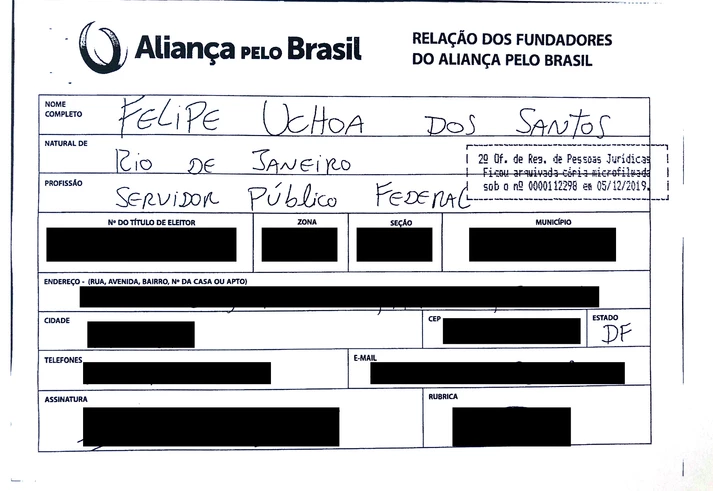 Aliança PELO Brasil
RELAÇÃO DOS FUNDADORES
DO ALIANÇA PELO BRASIL
NOME COMPLETO FELIPE UCHOA DOS SANTOS
NATURAL DE RIO DE JANEIRO
PROFISSÃO SERVIDOR PÚBLICO FEDERAL
2º Of. de Reg. de Pessoas Jurídicas
Ficou arquivada cópia microfilmada
sob o nº 0000112298 em 05/12/2019.
Nº DO TÍTULO DE ELEITOR ZONA SEÇÃO MUNICÍPIO
ENDEREÇO - (RUA, AVENIDA, BAIRRO, Nº DA CASA OU APTO)
CIDADE CEP ESTADO DF
TELEFONES E-MAIL
ASSINATURA RUBRICA